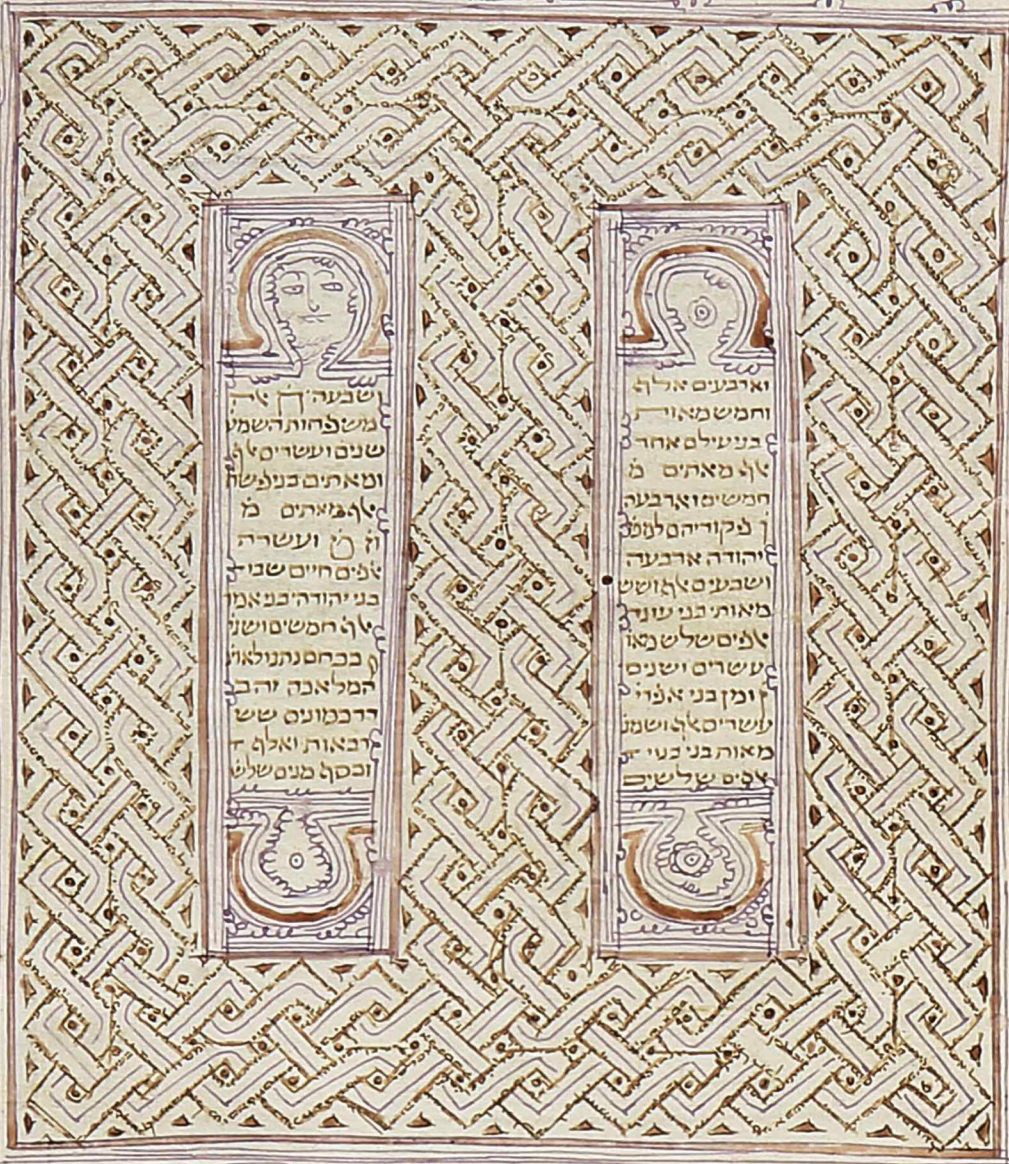 וארבעים אלף
וחמש מאות
בני עילם אחד
אלף מאתים מ
חמשים וארבעה
פקודיהם למט
יהודה ארבעה
ושבעים אלף ושש
מאות בני
אלפים שלש מאו
עשרים ושנים
ומן בני אפרי
עשרים אלף ושמנ
מאות בני
אלפים שלשים
ושבעה
משפחות השמע
שנים ועשרים אלף
ומאתים בני פשח
אלף מאתים מ
ועשרה
אלפים חיים שני ד
בני יהודה בני אמר
אלף חמשים ושני
ככחם נתנו לאוצ
המלאכה זהב
דרכמונים שש
רבאות ואלף ד
וכסף מנים שלש